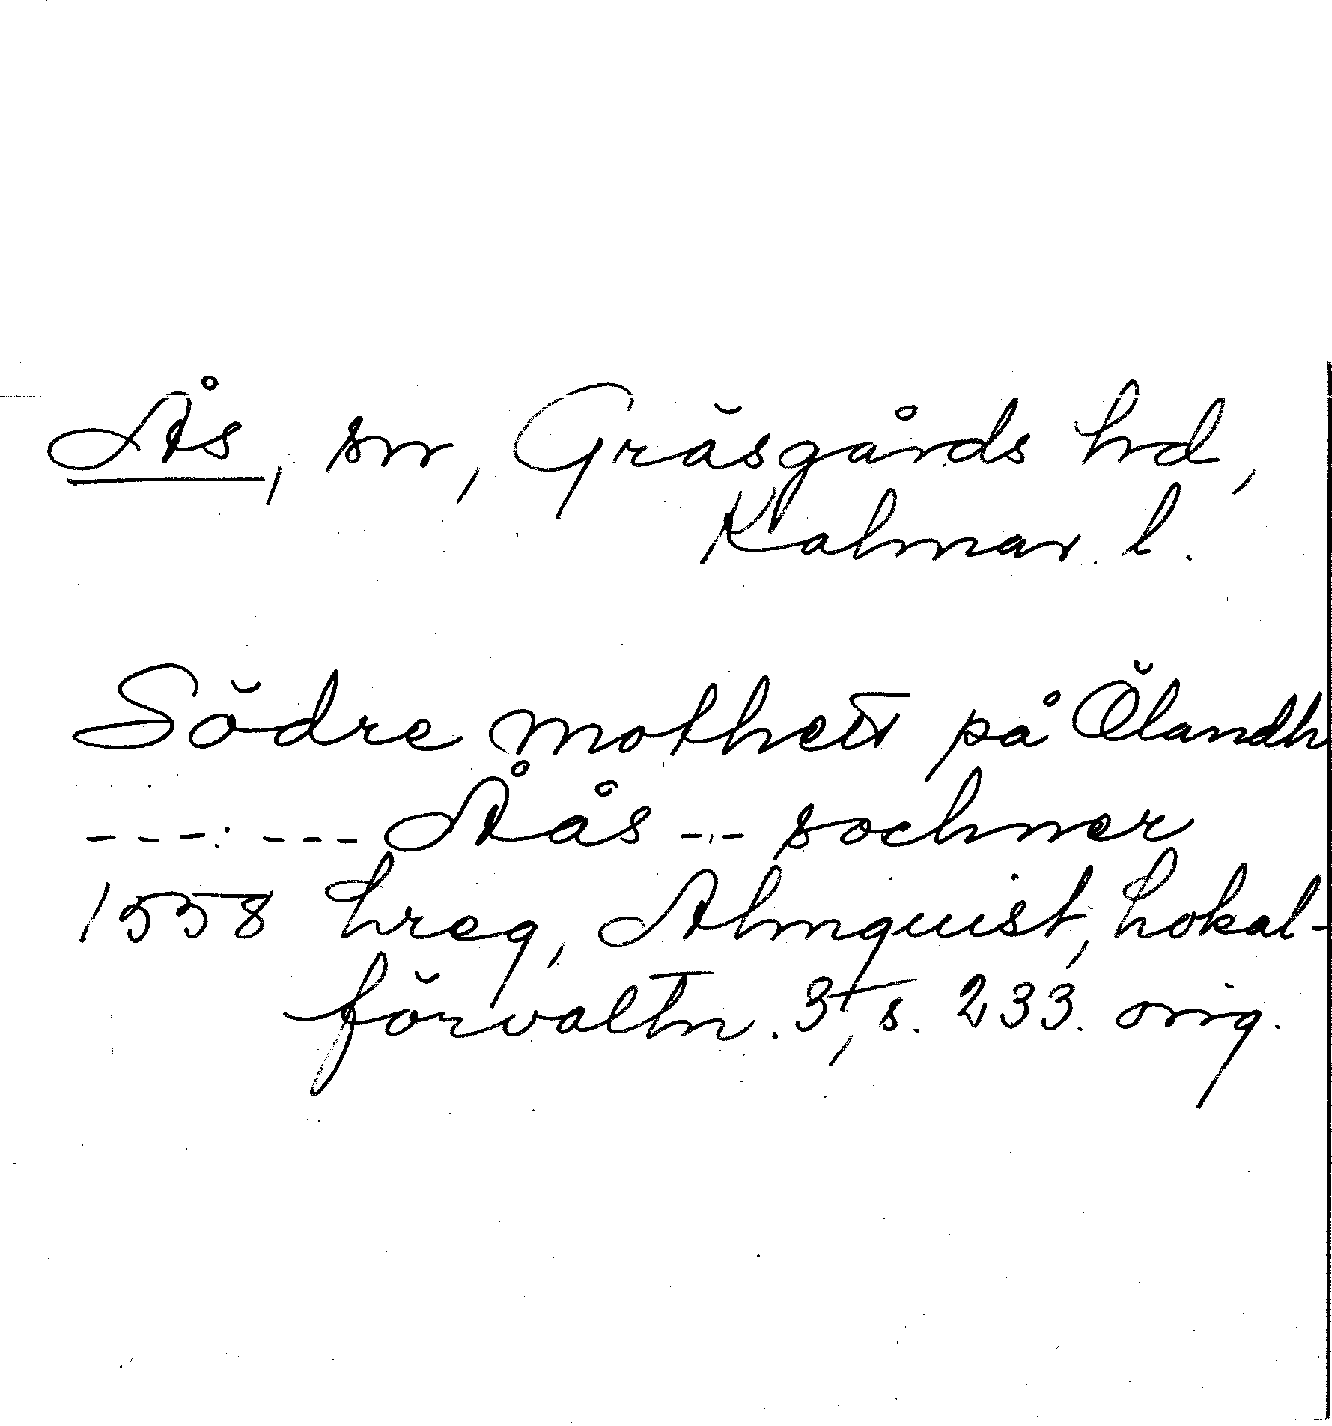 Ås, sn, Gräsgårds hd,
Kalmar l.
Södre mothett på Ölandh
---:---Åås--sochner
1558 hreg, Almquist, Lokal-
förvaltn. 3, s. 233. orig.